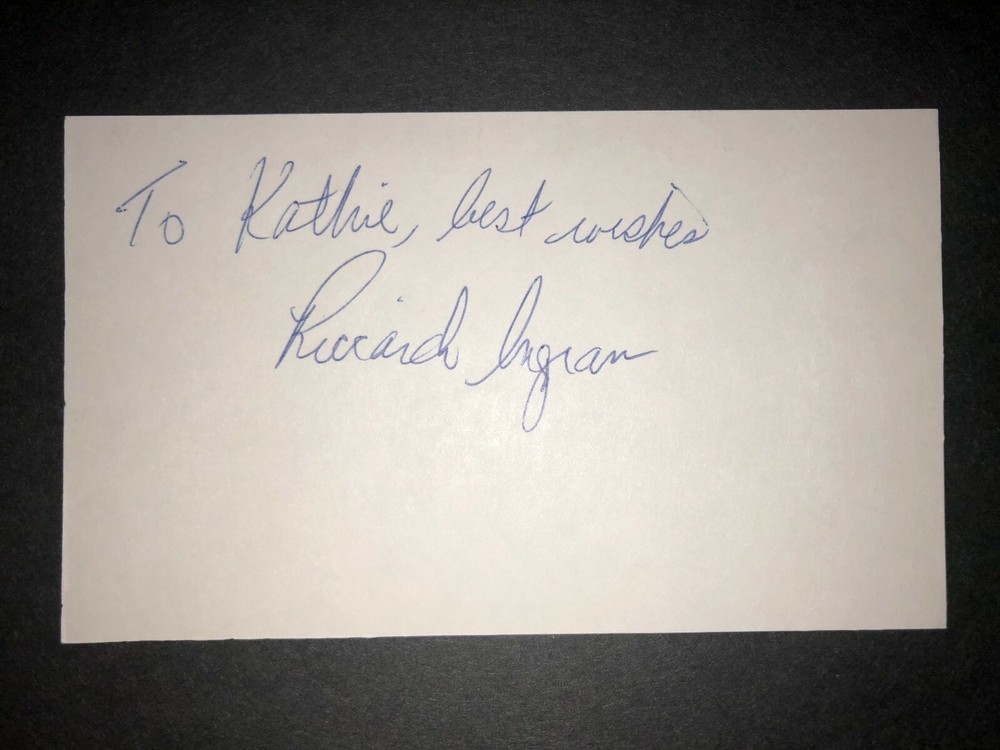 To Kathie, best wishes
Riccardo Ingram